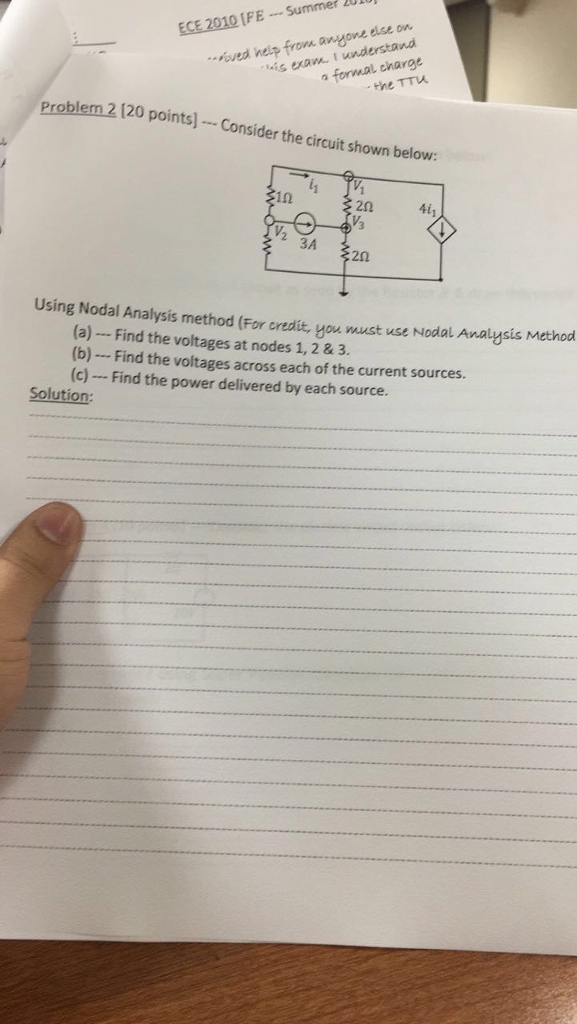 ECE 2010 [FE --- Summer
help from anyone else on
exam. I understand
a formal charge
the TTU
Problem 2 [20 points] --- Consider the circuit shown below:
i₁ V₁
1Ω 2Ω 4i₁
V₂ V₃
3A 2Ω
Using Nodal Analysis method (For credit, you must use Nodal Analysis Method
(a) --- Find the voltages at nodes 1, 2 & 3.
(b) --- Find the voltages across each of the current sources.
(c) --- Find the power delivered by each source.
Solution: